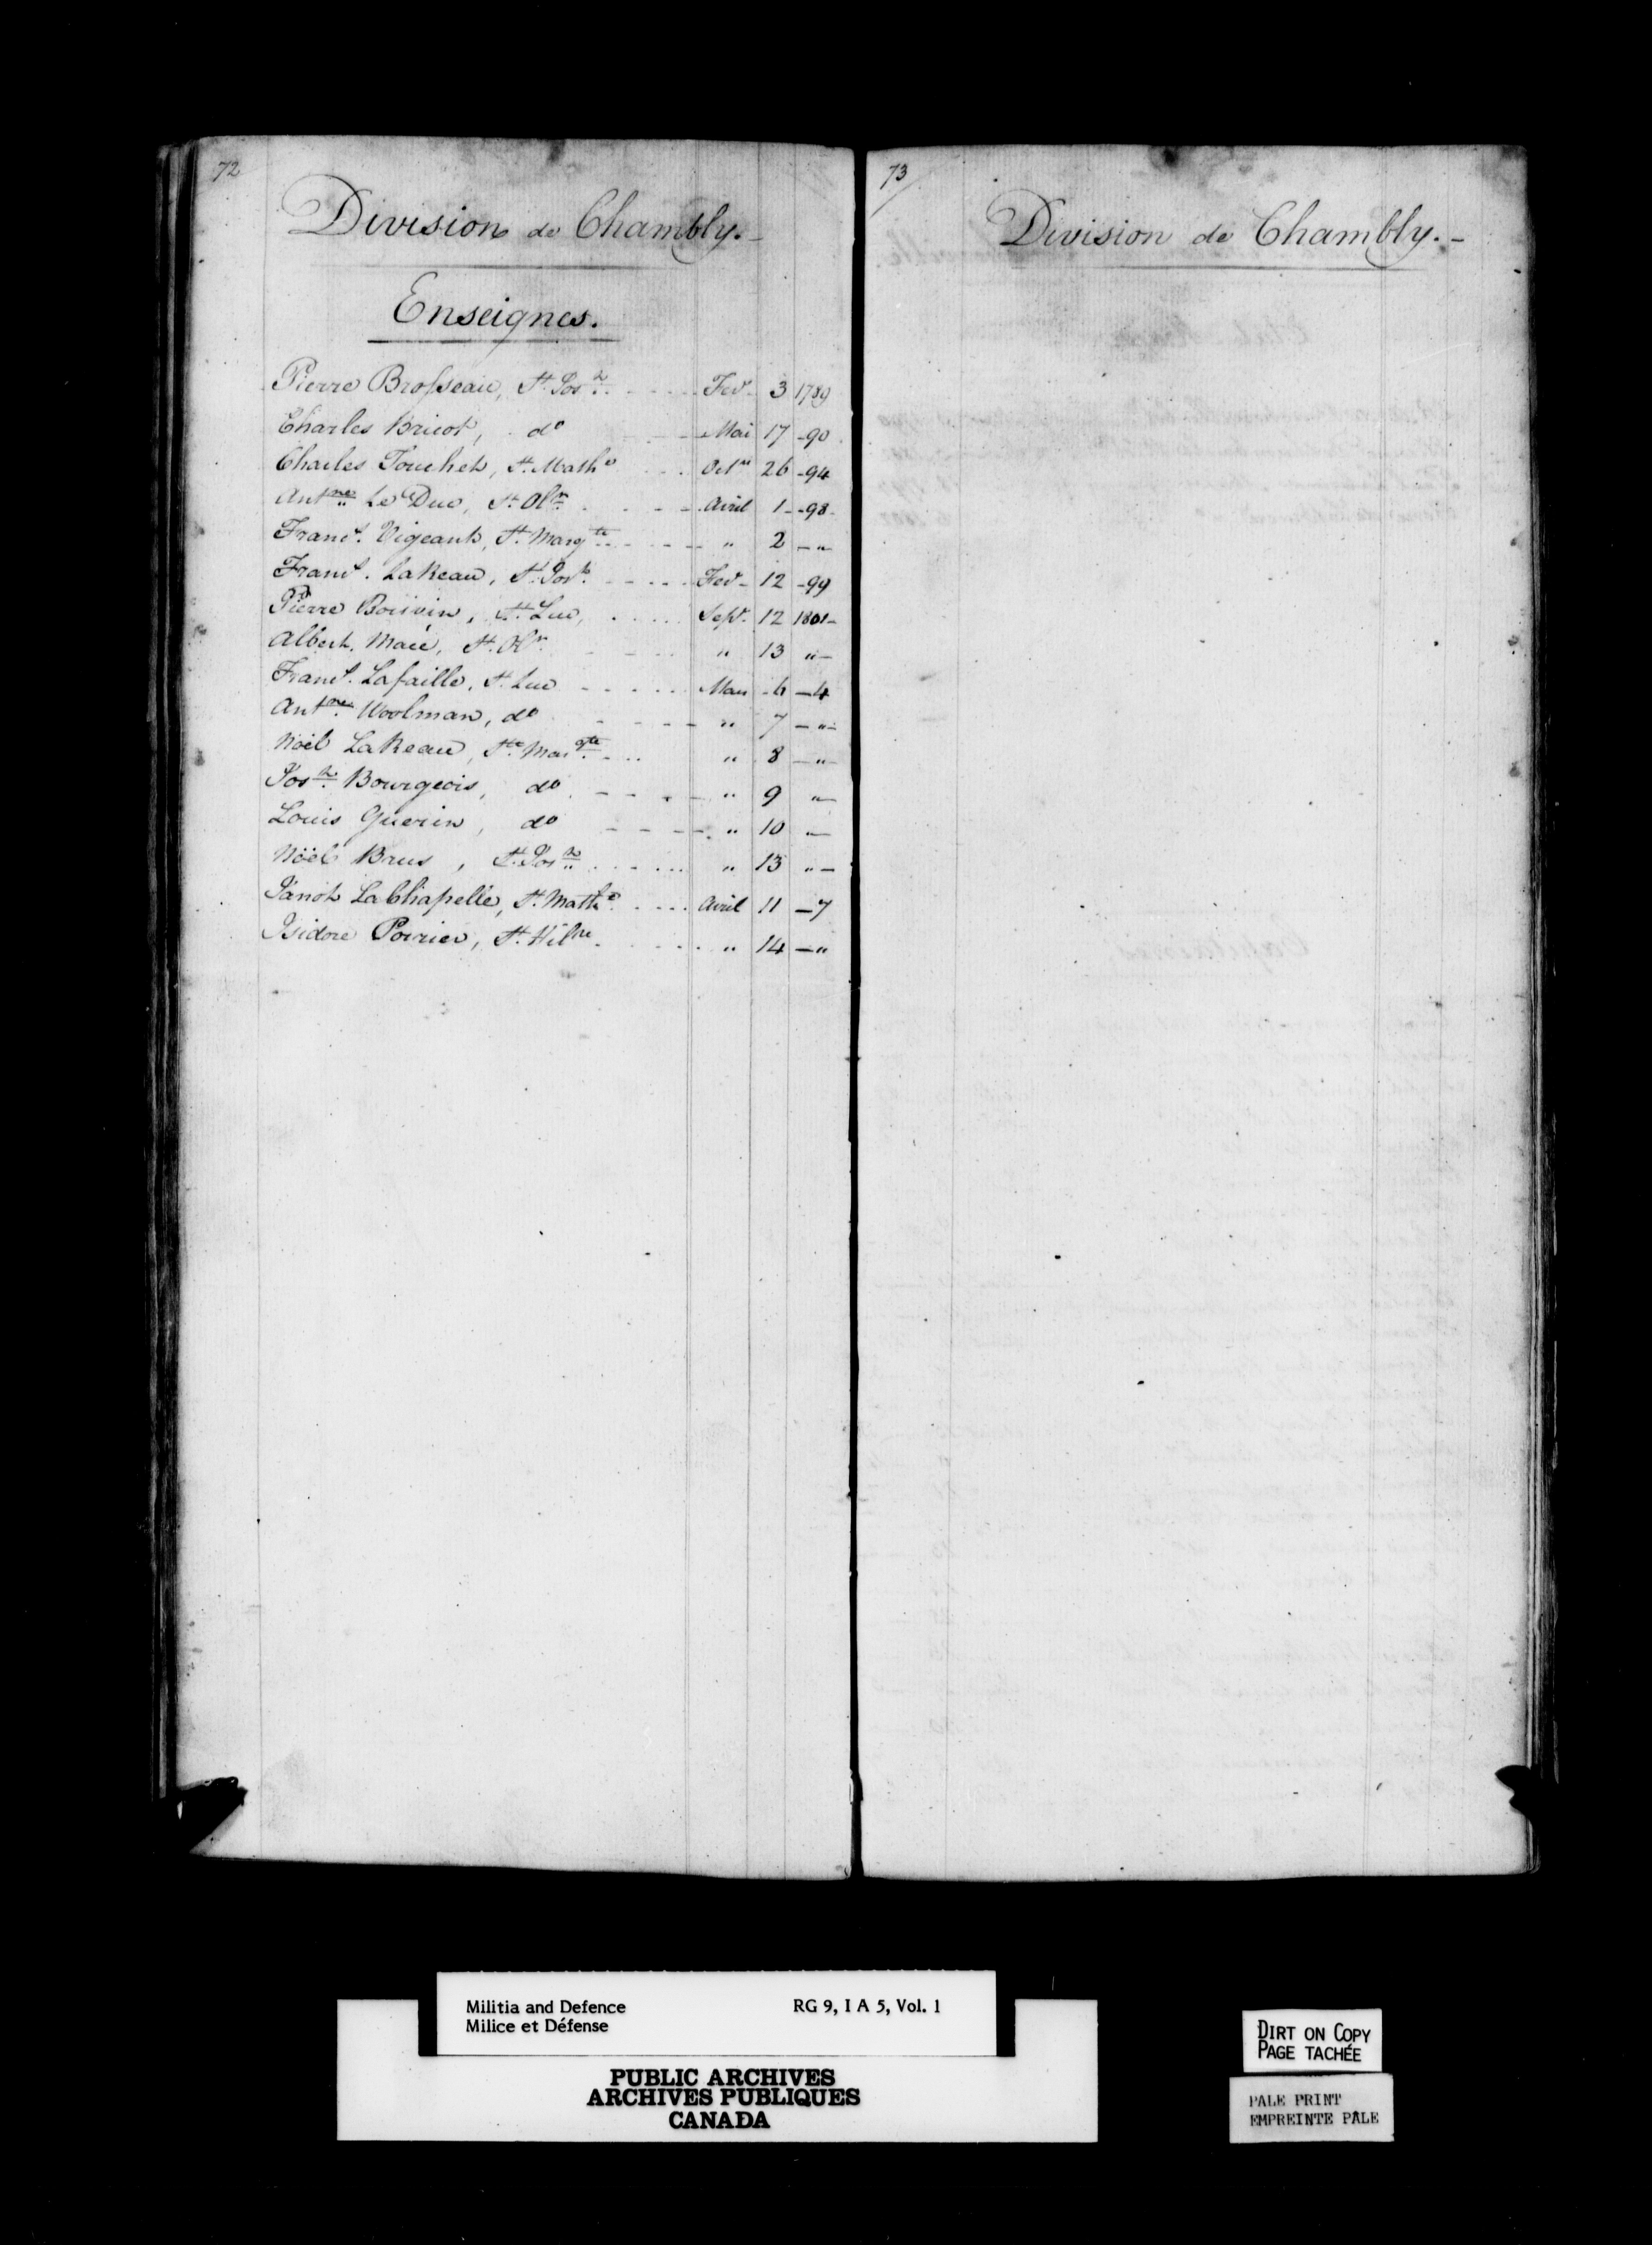 72
Division de Chambly.-
Enseignes.
Pierre Brosseau, St. Jos.h Fevr 3 1789
Charles Bricot, do Mai 17 -90
Charles Touchet, St. Mathw Octre 26 -94
Antne Le Duc, St. Olr Avril 1 -98
Frans. Vigeant, St. Margte " 2 -"
Frans. LaReau, St. Josh Fevr 12 -99
Pierre Boisvin, St. Luc, Sepr. 12 1801-
Albert. Macé, St. Olr " 13 "-
Frans. Lafaille, St. Luc Mars 6 -4
Antne Woolman, do " 7 -"-
Noël LaReau, Ste Margte " 8 -"-
Josh Bourgeois, do " 9 "-
Louis Guerin, do " 10 "-
Noël Brus, St. Josh " 13 "-
Janot LaChapelle, St. Mathw Avril 11 -7
Isidore Poirier, St. Hilre " 14 -"
73
Division de Chambly.-
Militia and Defence RG 9, I A 5, Vol. 1
Milice et Défense
PUBLIC ARCHIVES
ARCHIVES PUBLIQUES
CANADA
DIRT ON COPY
PAGE TACHÉE
PALE PRINT
EMPREINTE PÂLE